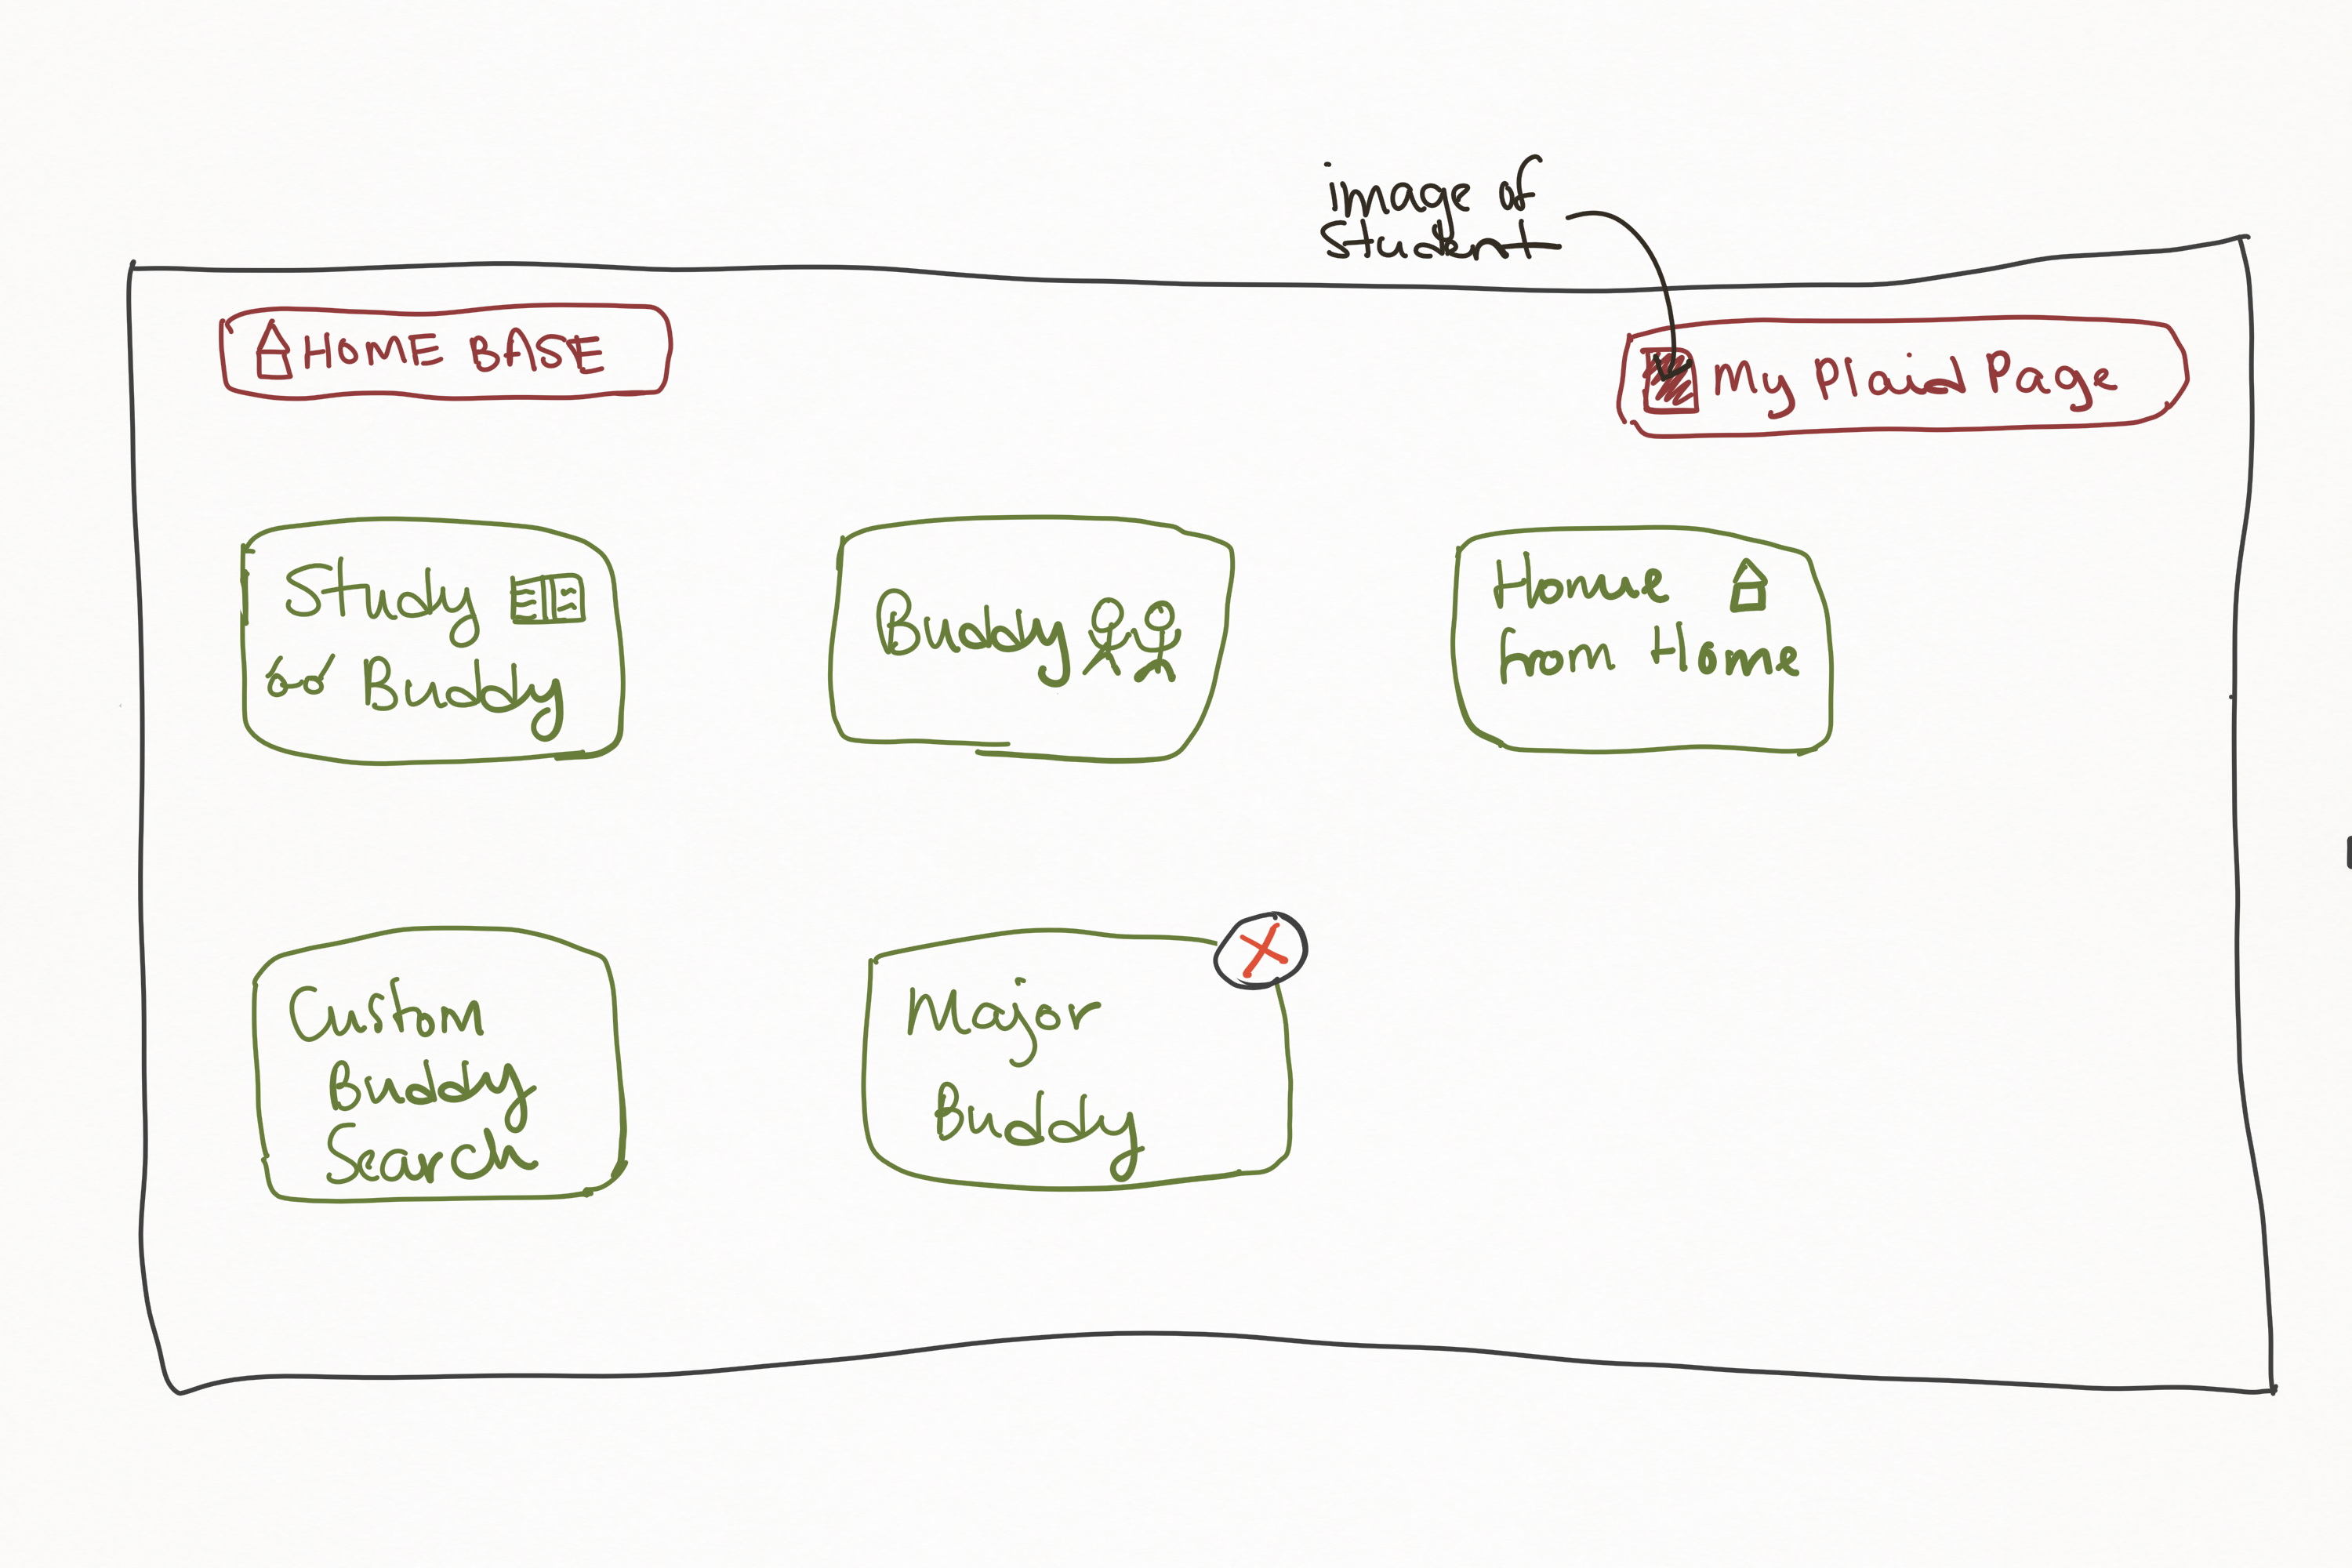 image of
Student
HOME BASE
My Plaid Page
Study
Buddy
Buddy
Home
from Home
Custom
Buddy
Search
Major
Buddy